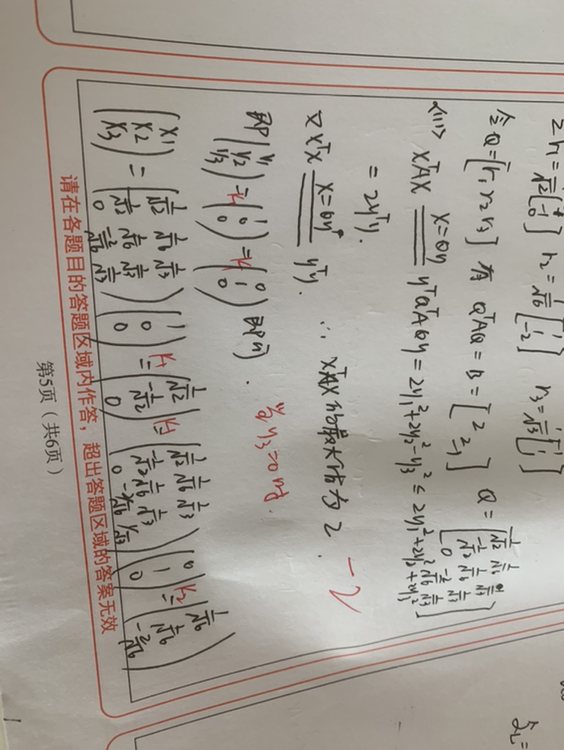 2 r₁ = 1/√2 [1 -1 0] r₂ = 1/√6 [1 1 -2] r₃ = 1/√3 [1 1 1]
令 Q = [r₁, r₂, r₃] 有 QᵀAQ = B = [2 2 -1] Q = [1/√2 1/√6 1/√3 -1/√2 1/√6 1/√3 0 -2/√6 1/√3]
<III> xᵀAx x=Qy yᵀQᵀAQy = 2y₁²+2y₂²-y₃² ≤ 2y₁²+2y₂²+2y₃²
= 2yᵀy.
又 xᵀx x=Qy yᵀy. ∴ xᵀAx的最大值为 2. -2
即 (y₁ y₂ y₃) = k₁(1 0 0) = k₂(0 1 0) 即可. 当y₃=0时.
(x₁ x₂ x₃) = (1/√2 1/√6 1/√3 -1/√2 1/√6 1/√3 0 -2/√6 1/√3) (1 0 0) k₁ = (1/√2 -1/√2 0) k₁ (1/√2 1/√6 1/√3 -1/√2 1/√6 1/√3 0 -2/√6 1/√3) (0 1 0) k₂ = (1/√6 1/√6 -2/√6)
请在各题目的答题区域内作答，超出答题区域的答案无效
第5页（共6页）